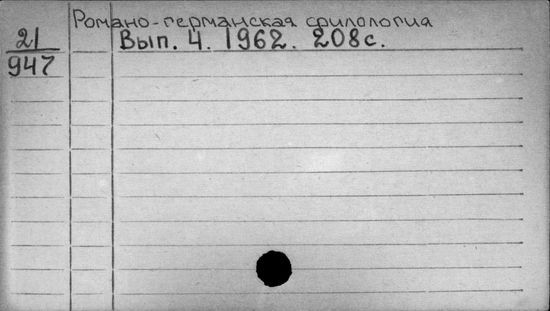 Романо-германская филология
21 Вып. 4. 1962. 208с.
947